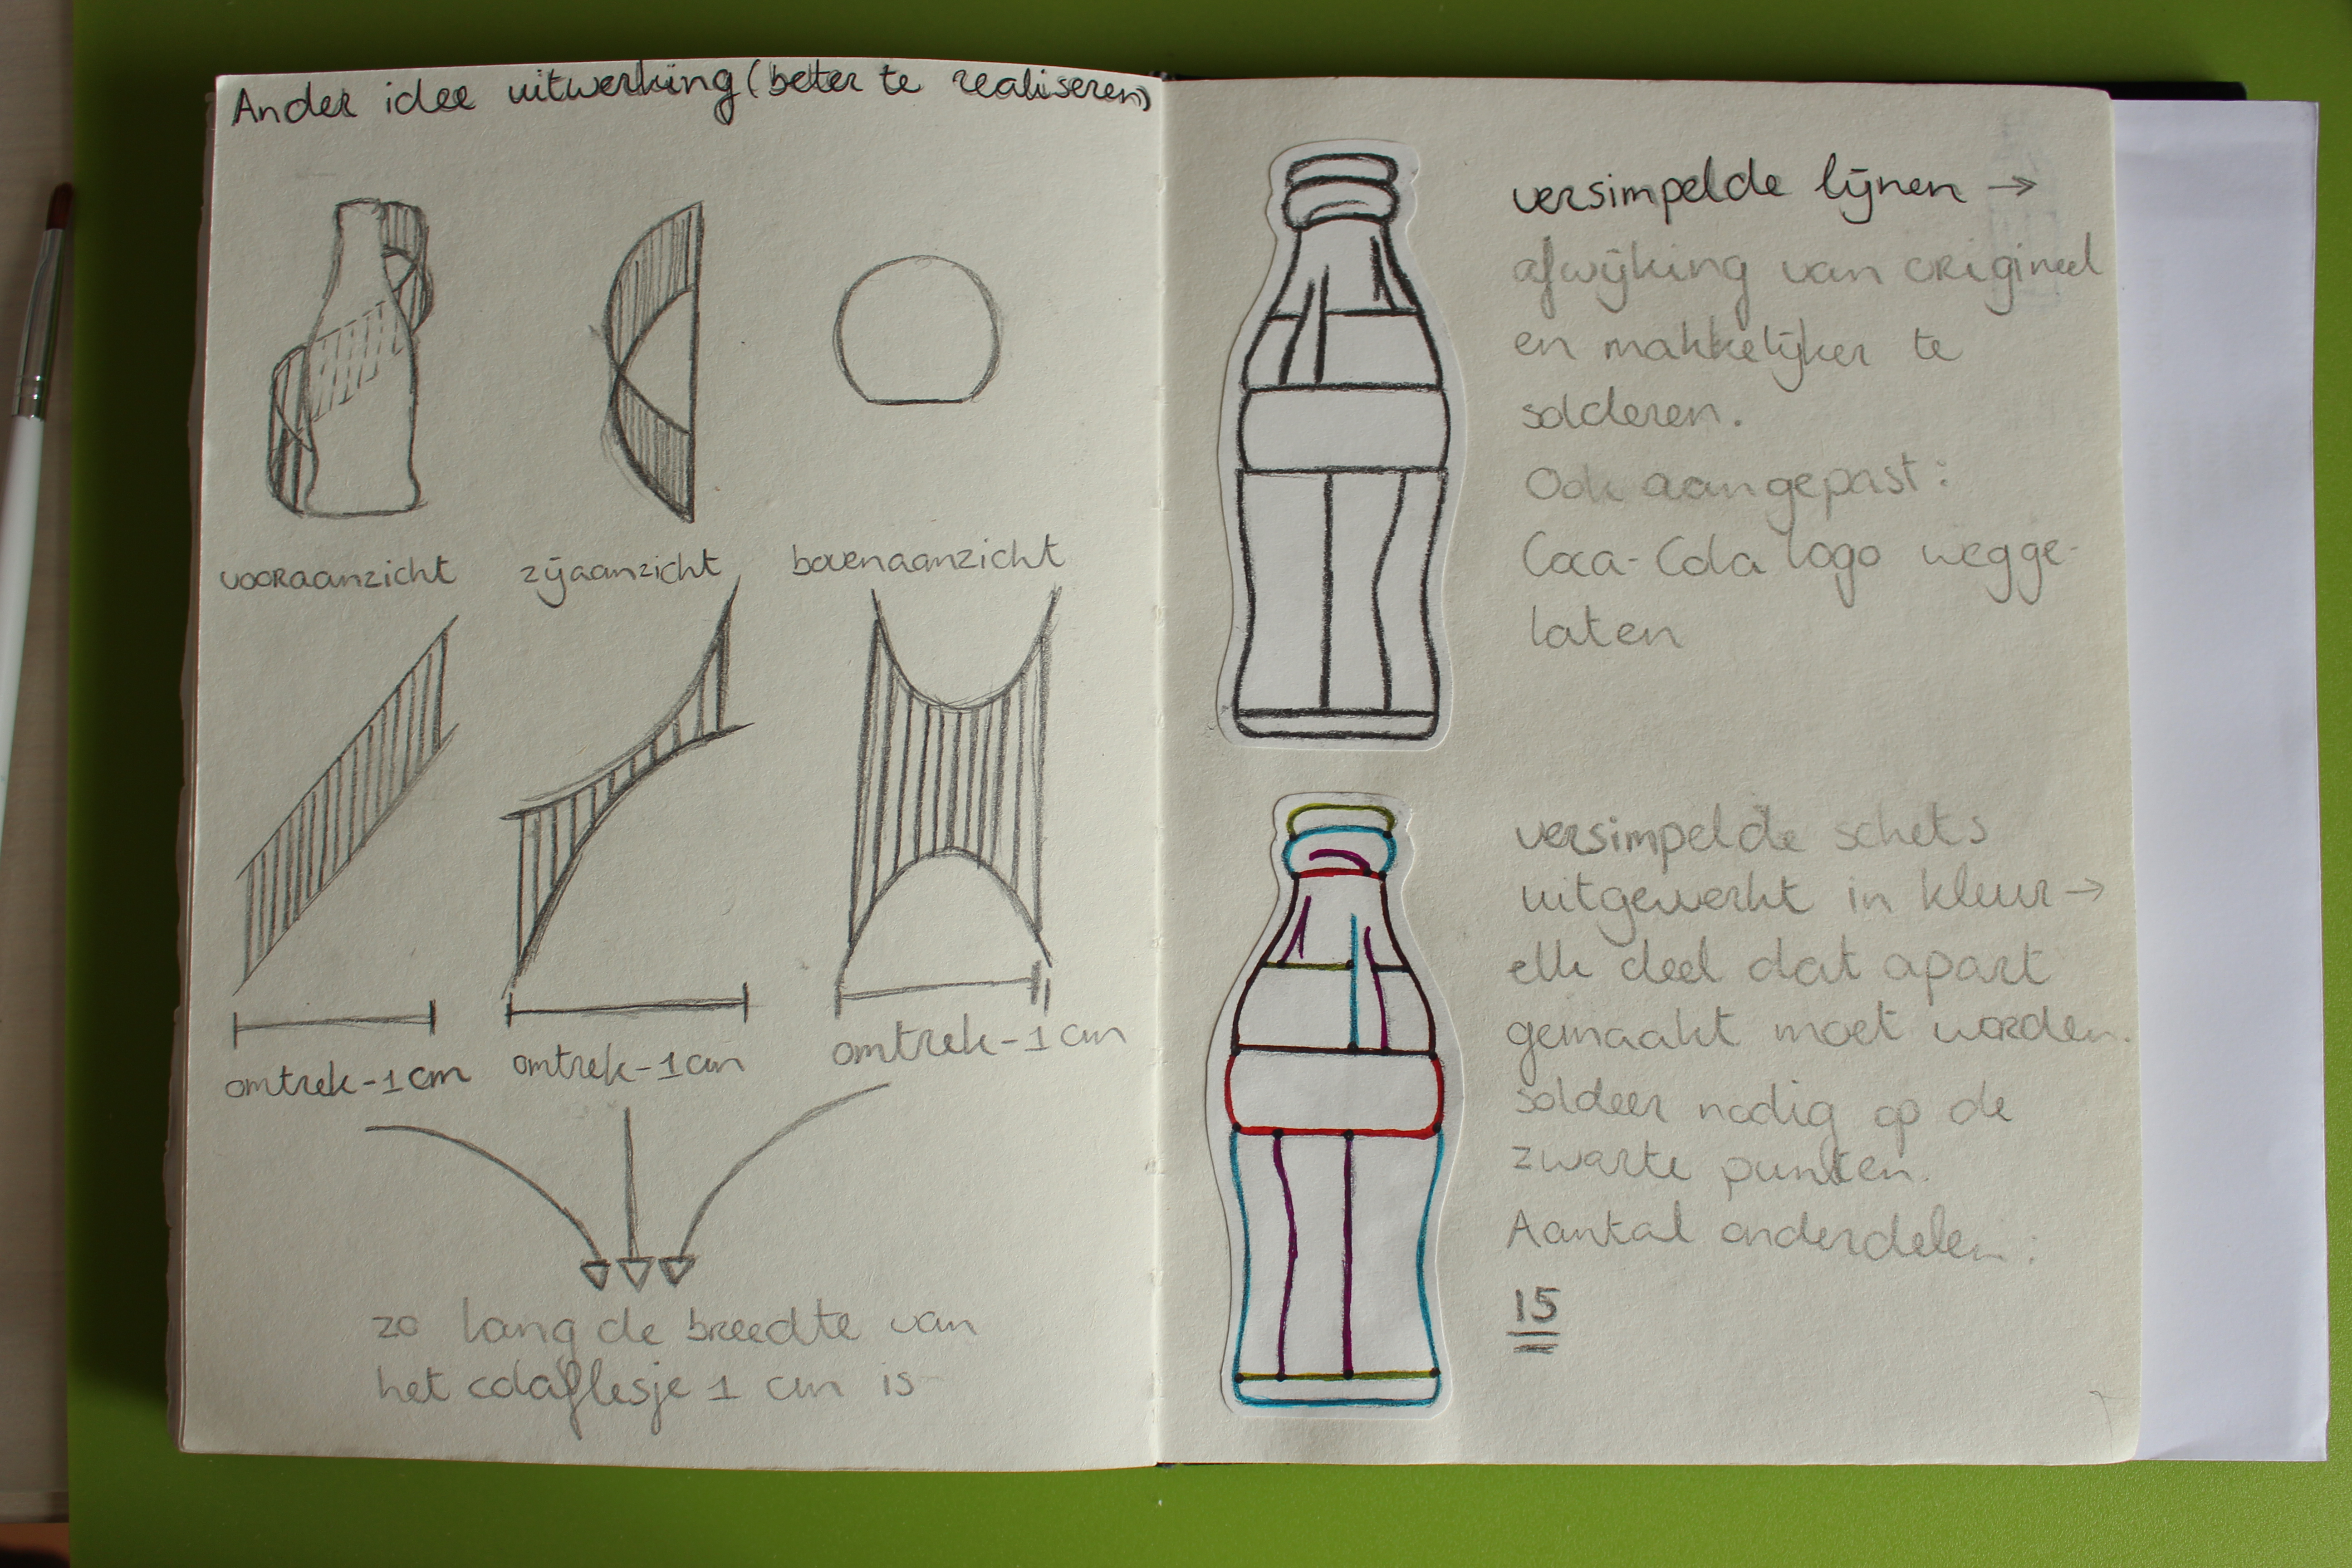 Ander idee uitwerking (beter te realiseren)
vooraanzicht
zijaanzicht
bovenaanzicht
omtrek-1cm
omtrek-1cm
omtrek-1cm
zo lang de breedte van
het colaflesje 1 cm is
versimpelde lijnen →
afwijking van origineel
en makkelijker te
solderen.
Ook aangepast:
Coca-Cola logo wegge-
laten
versimpelde schets
uitgewerkt in kleur →
elk deel dat apart
gemaakt moet worden.
soldeer nodig op de
zwarte punten.
Aantal onderdelen:
15